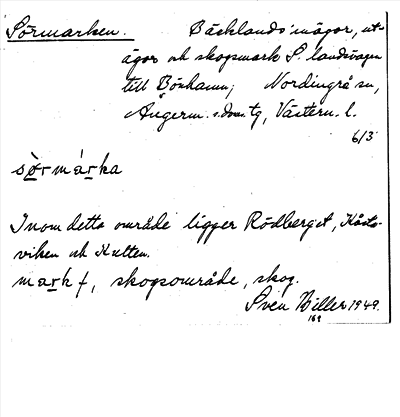 Sörmarken. Bäcklands inägor, ut-
ägor och skogsmark S. landsvägen
till Bönhamn; Nordingrå sn,
Ångerm. s. doms. tg, Västern. l.
6/3
sò̱rmár̲ka
Inom detta område ligger Rödberget, Kåsta-
viken och Kutten.
mar̲k f, skogsområde, skog.
Sven Biller 1949.
169